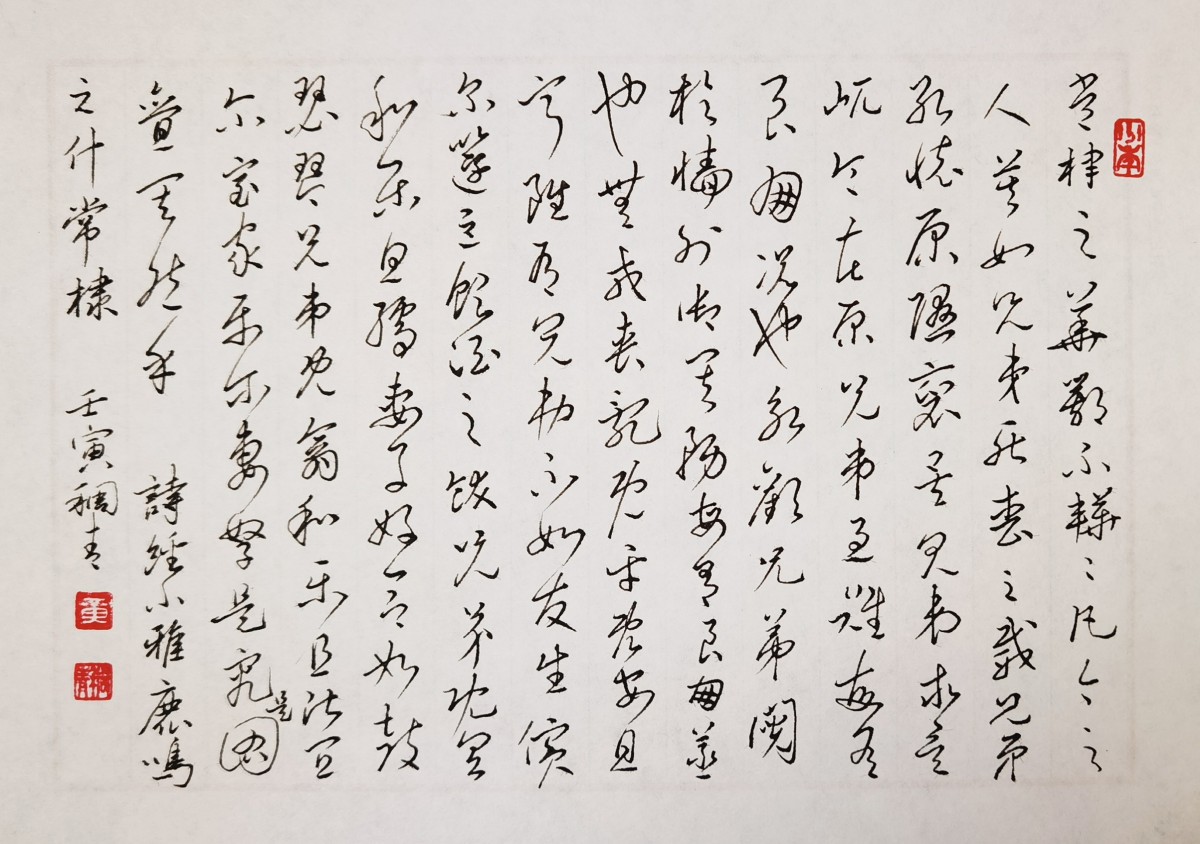 常棣之華鄂不韡〻凡今之
人莫如兄弟死喪之威兄弟
孔懷原隰裒矣兄弟求矣
脊令在原兄弟急難每有
良朋況也永歎兄弟鬩
於牆外禦其務每有良朋烝
也無戎喪亂既平既安且
寧雖有兄弟不如友生儐
尔籩豆飲酒之飫兄弟既具
和樂且孺妻子好合如鼓
瑟琴兄弟既翕和樂且湛宜
尔室家樂尔妻孥是究是圖
亶其然乎 詩經小雅鹿鳴
之什常棣 壬寅稠青
董